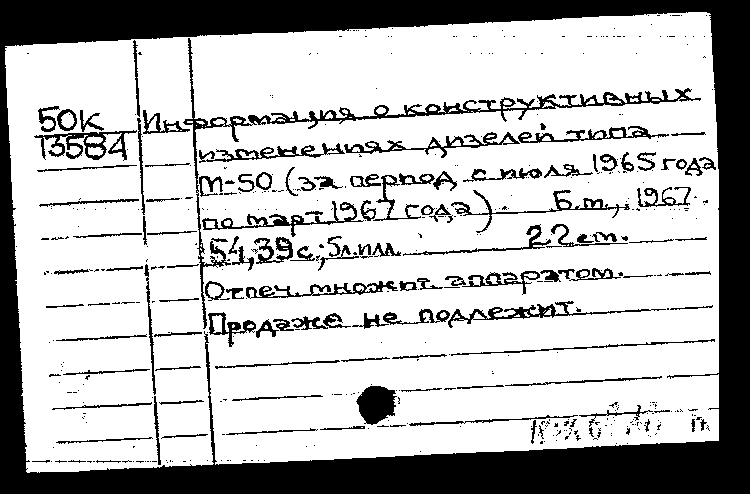 50К Информация о конструктивных
13584 изменениях дизелей типа
М-50 (за период с июля 1965 года
по март 1967 года). Б.м., 1967.
54,39 с.; 5 л. илл. 22 см.
Отпеч. множит. аппаратом.
Продаже не подлежит.